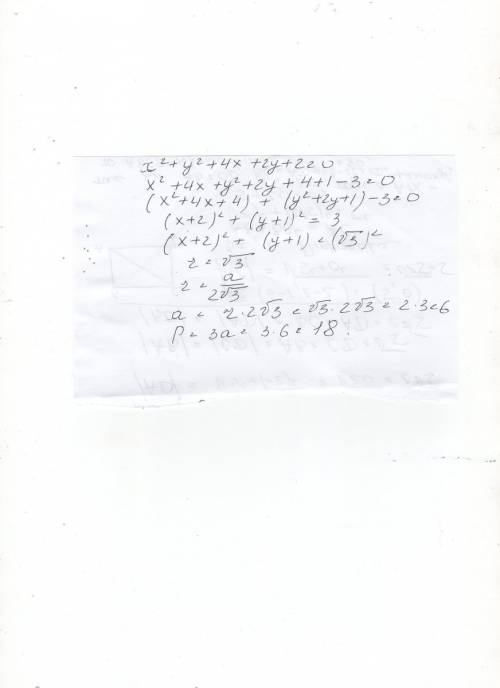 x²+y²+4x+2y+2=0
x²+4x+y²+2y+4+1-3=0
(x²+4x+4)+(y²+2y+1)-3=0
(x+2)²+(y+1)²=3
(x+2)²+(y+1)=(√3)²
r=√3
r=a/2√3
a=r·2√3=√3·2√3=2·3=6
P=3a=3·6=18